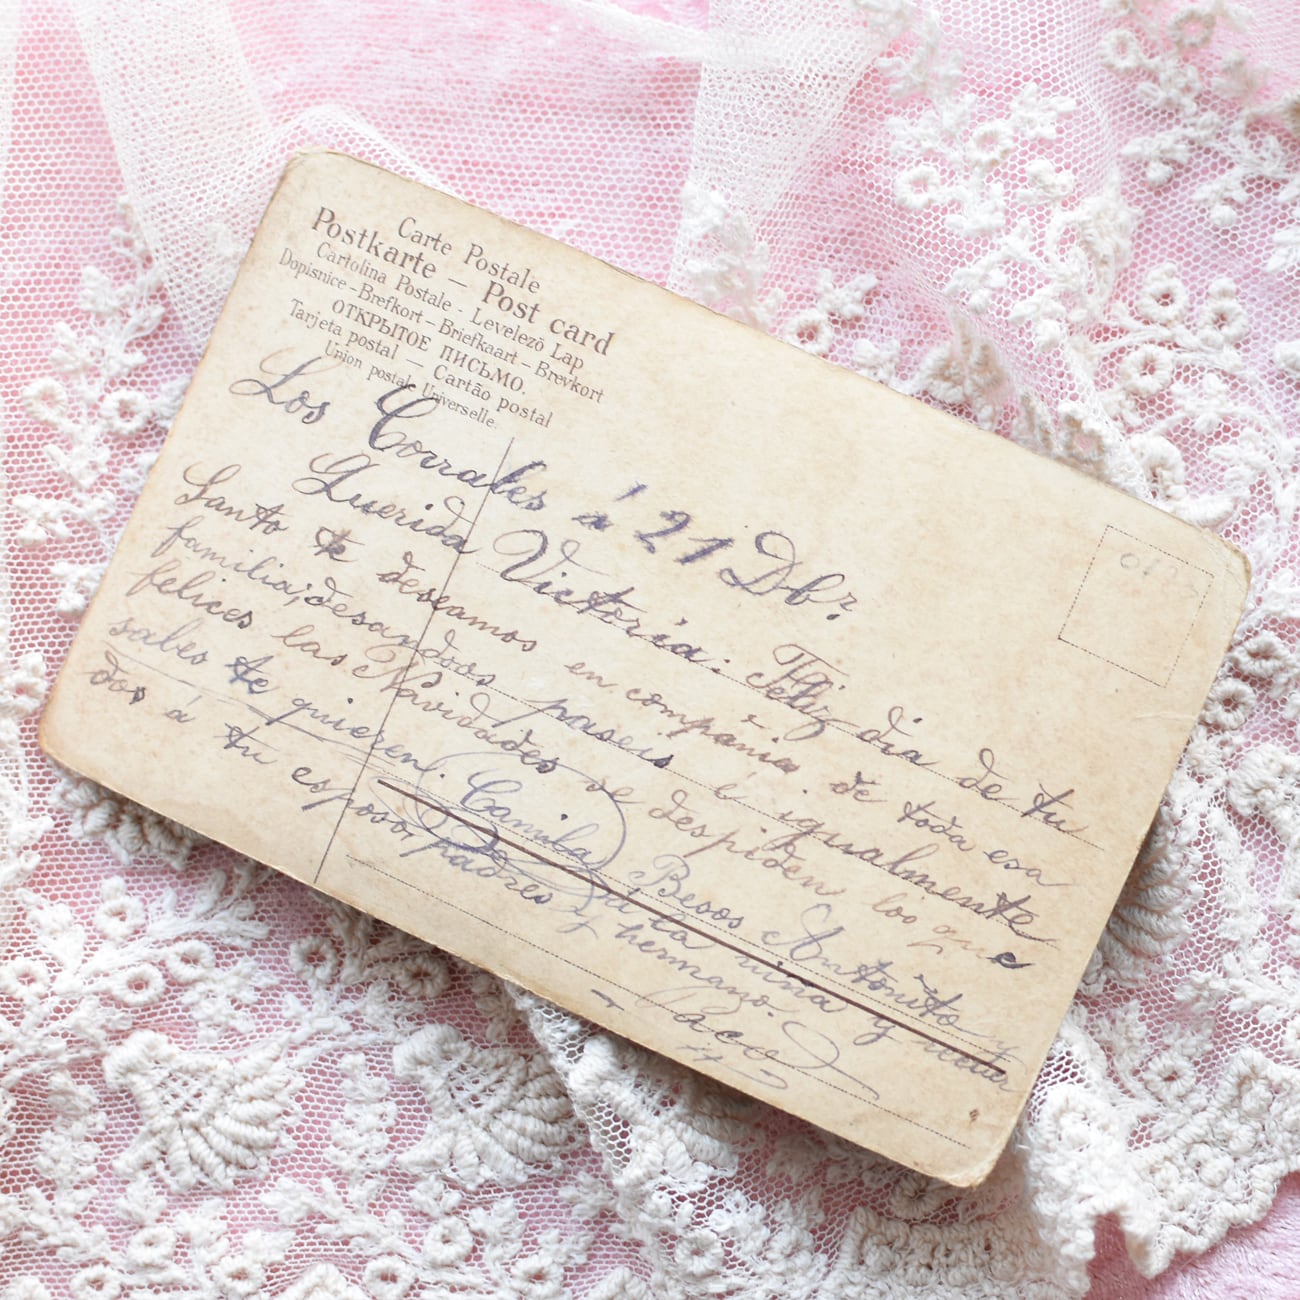 Carte Postale
Postkarte — Post card
Cartolina Postale - Levelezò Lap
Dopisnice - Brefkort - Briefkaart - Brevkort
ОТКРЫТОЕ ПИСЬМО.
Tarjeta postal — Cartão postal
Union postale Universelle.
Los Corrales á 21 Dbr
Querida Victoria: Feliz dia de tu
Santo te deseamos en compañia de toda esa
familia; desandoos paseis é igualmente
felices las Navidades se despiden los que
sabes te quieren. Camila Besos Antoñito y
dos á tu esposo, padres y hermano. á la niña y
Paco